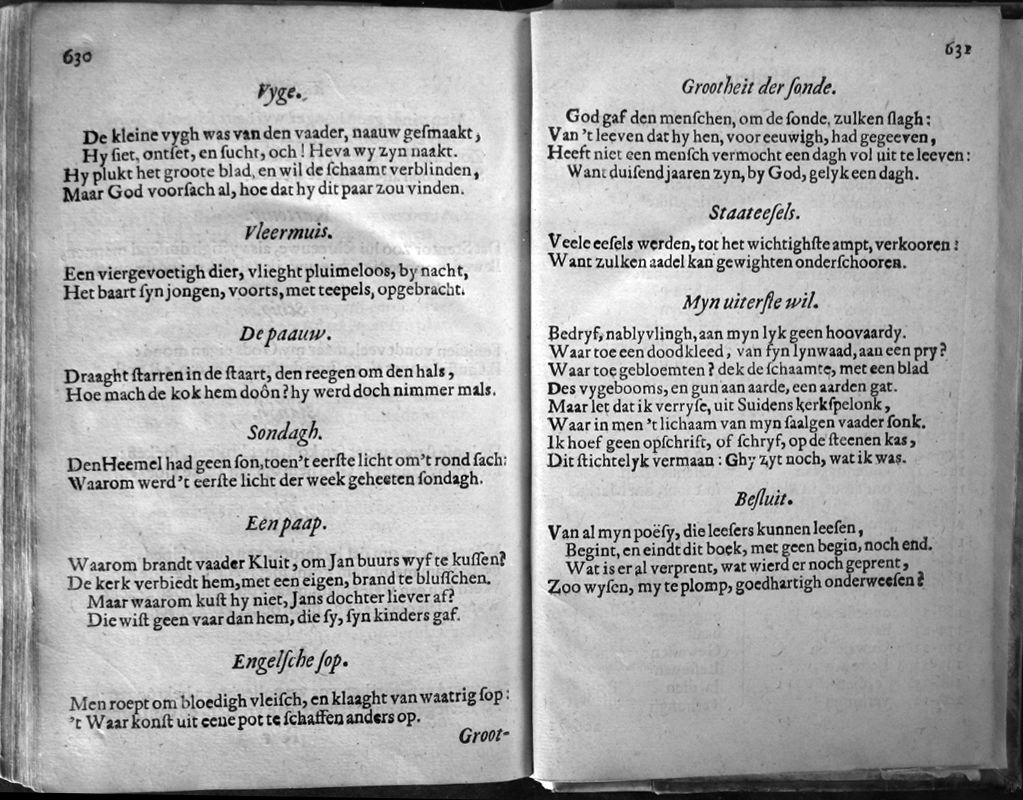 630
Vyge.
De kleine vygh was van den vaader, naauw geſmaakt,
Hy ſiet, ontſet, en ſucht, och! Heva wy zyn naakt.
Hy plukt het groote blad, en wil de ſchaamt verblinden,
Maar God voorſach al, hoe dat hy dit paar zou vinden.
Vleermuis.
Een viergevoetigh dier, vlieght pluimeloos, by nacht,
Het baart ſyn jongen, voorts, met teepels, opgebracht.
De paauw.
Draaght ſtarren in de ſtaart, den reegen om den hals,
Hoe mach de kok hem doôn? hy werd doch nimmer mals.
Sondagh.
Den Heemel had geen ſon, toen't eerſte licht om't rond ſach:
Waarom werd't eerſte licht der week geheeten ſondagh.
Een paap.
Waarom brandt vaader Kluit, om Jan buurs wyf te kuſſen?
De kerk verbiedt hem, met een eigen, brand te bluſſchen.
Maar waarom kuſt hy niet, Jans dochter liever af?
Die wiſt geen vaar dan hem, die ſy, ſyn kinders gaf.
Engelſche ſop.
Men roept om bloedigh vleiſch, en klaaght van waatrig ſop:
't Waar konſt uit eene pot te ſchaffen anders op.
Groot-
631
Grootheit der ſonde.
God gaf den menſchen, om de ſonde, zulken ſlagh:
Van 't leeven dat hy hen, voor eeuwigh, had gegeeven,
Heeft niet een menſch vermocht een dagh vol uit te leeven:
Want duiſend jaaren zyn, by God, gelyk een dagh.
Staateeſels.
Veele eeſels werden, tot het wichtighſte ampt, verkooren:
Want zulken aadel kan gewighten onderſchooren.
Myn uiterſte wil.
Bedryf, nablyvlingh, aan myn lyk geen hoovaardy.
Waar toe een doodkleed, van ſyn lynwaad, aan een pry?
Waar toe gebloemten? dek de ſchaamte, met een blad
Des vygebooms, en gun aan aarde, een aarden gat.
Maar let dat ik verryſe, uit Suidens kerkſpelonk,
Waar in men 't lichaam van myn ſaalgen vaader ſonk.
Ik hoef geen opſchrift, of ſchryf, op de ſteenen kas,
Dit ſtichtelyk vermaan: Ghy zyt noch, wat ik was.
Beſluit.
Van al myn poëſy, die leeſers kunnen leeſen,
Begint, en eindt dit boek, met geen begin, noch end.
Wat is er al verprent, wat wierd er noch geprent,
Zoo wyſen, my te plomp, goedhartigh onderweeſen?